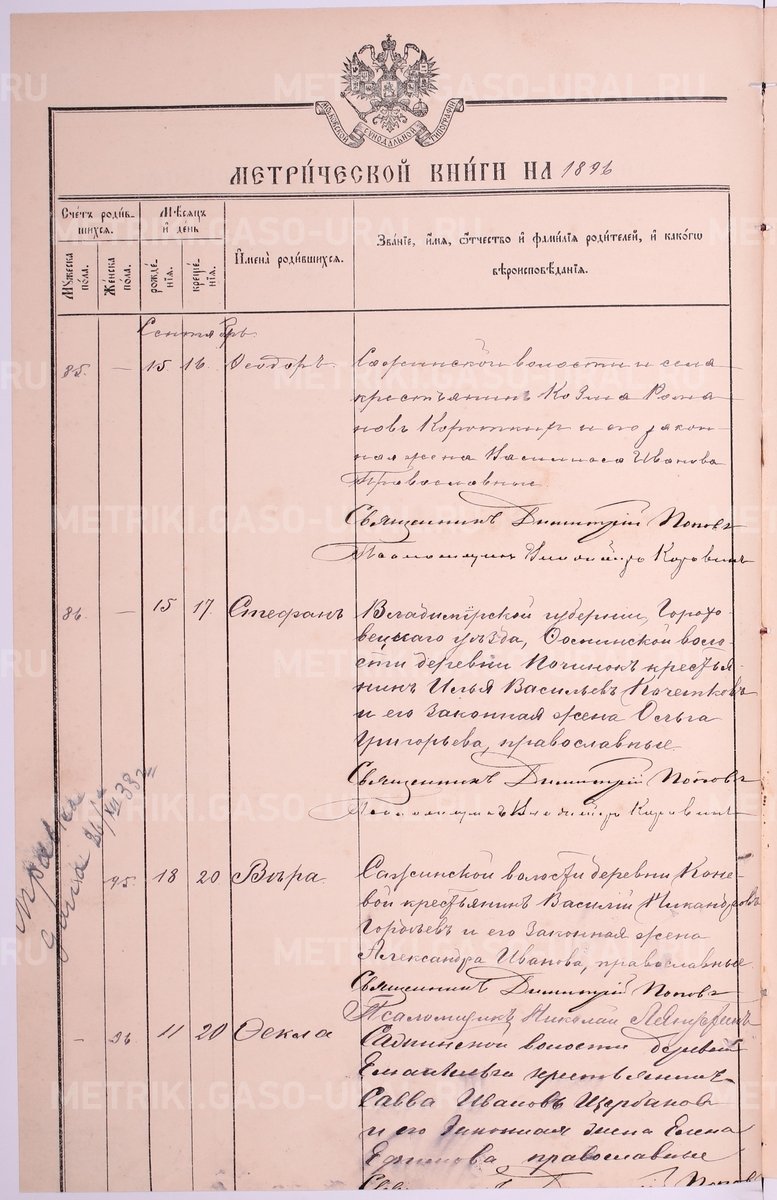 МОСКОВСКОЙ СѴНОДАЛЬНОЙ ТИПОГРАФІИ
МЕТРИ́ЧЕСКОЙ КНИ́ГИ НА 1896
Счетъ роди́в-
шихся.
Му́жеска по́ла.
Же́нска по́ла.
Мѣ́сяцъ
и҆ де́нь
рожде́нія.
креще́нія.
И҆мена̀ роди́вшихся.
Зва́ніе, и҆́мя, ѻ҆́тчество и҆ фами́лія роди́телей, и҆ како́гѡ
вѣроисповѣ́данія.
Сентябрь
85. — 15 16 Ѳеодоръ Сажинской волости и села
крестьянинъ Козма Рома
новъ Коротких и его закон
ная жена Василиса Иванова
Православные
Священникъ Димитрій Поповъ
Псаломщикъ Владиміръ Коровинъ
86. — 15 17. Стефанъ Владимірской губерніи, Горохо-
вецкаго уѣзда, волос-
сти деревни Починокъ крестья-
нинъ Илья Васильевъ Кочетковъ
и его законная жена Ольга
Григорьева, православные.
Священникъ Димитрій Поповъ
Псаломщикъ Владиміръ Коровинъ
95. 18 20 Вѣра. Сажинской волости деревни Коне-
вой крестьянинъ Василій Никандровъ
и его законная жена
Александра Иванова, православные
Священникъ Димитрій Поповъ
Псаломщикъ Николай
- 96. 11 20 Ѳекла Сажинской волости деревни
крестьянинъ
Савва Ивановъ Щербаковъ
и его законная жена Елена
Ефимова православные
METRIKI.GASO-URAL.RU